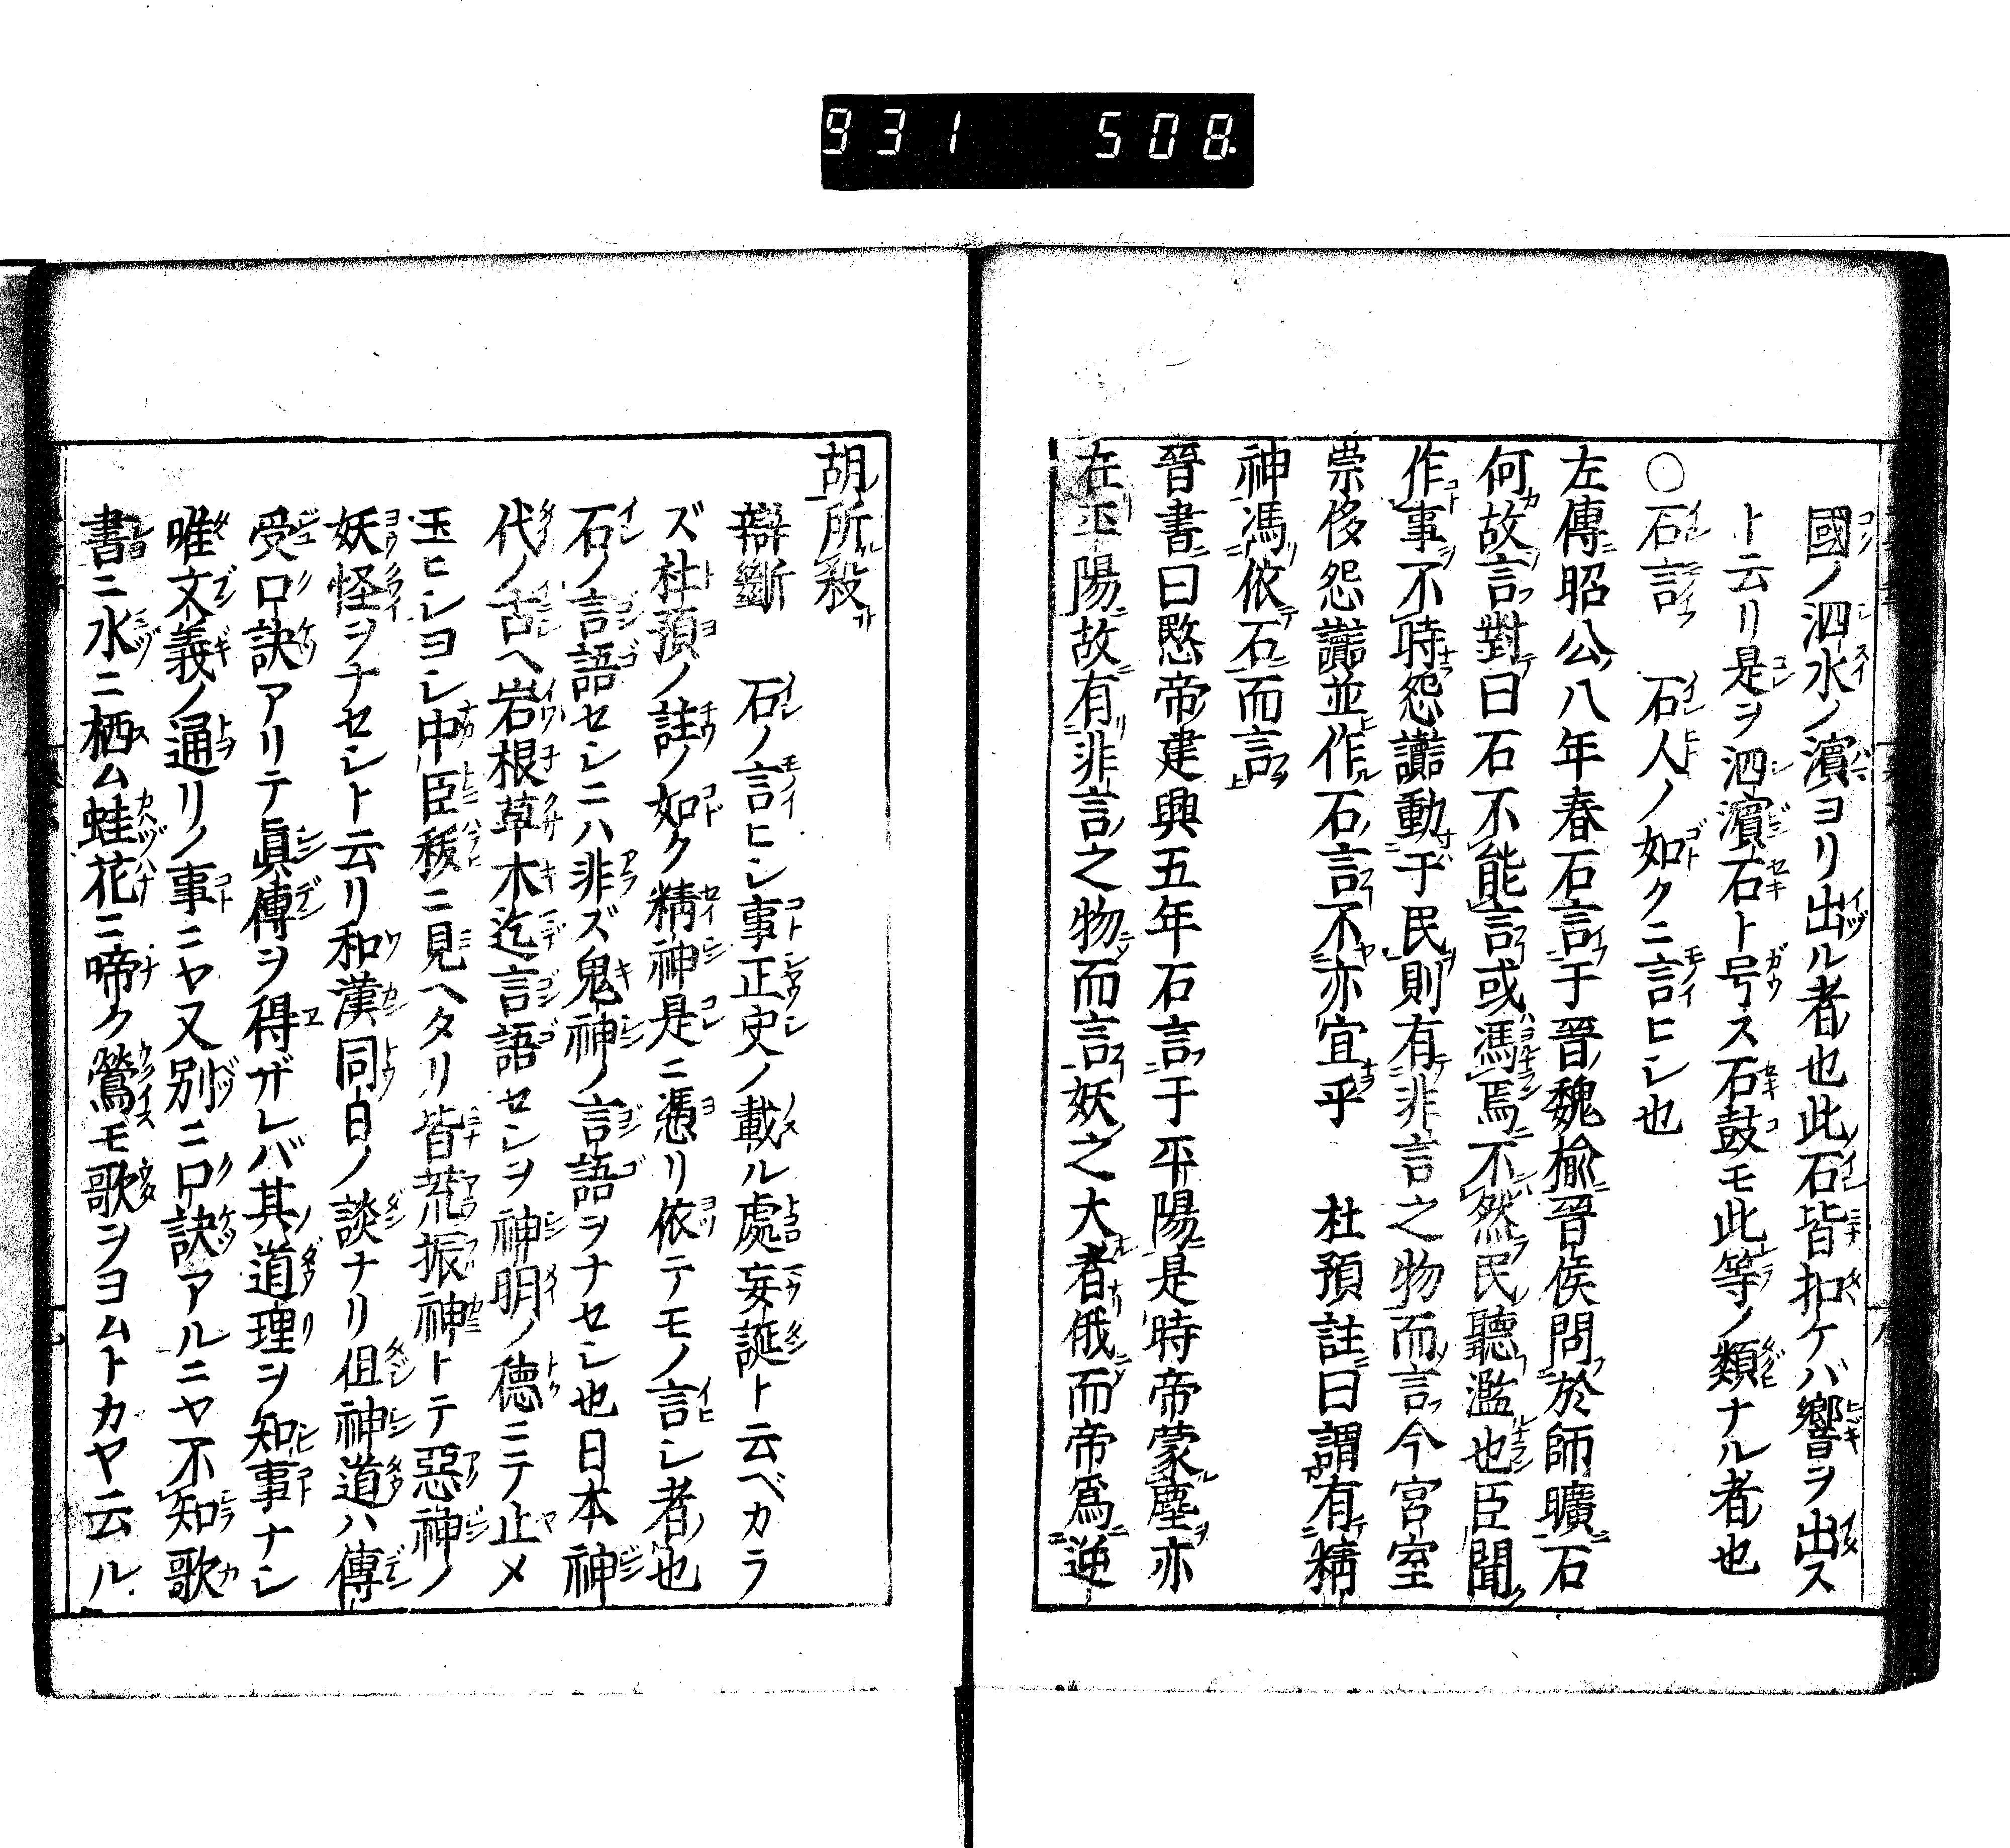 931 508
國ノ泗水ノ濱ヨリ出ル者也此石皆扣ケバ響ヲ出ス
ト云リ是ヲ泗濱石ト号ス石鼓モ此等ノ類ナル者也
〇石言 石人ノ如クニ言ヒシ也
左傳昭公八年春石言于晉魏楡晉侯問於師曠石
何故言對曰石不能言或馮焉不然民聽濫也臣聞
作事不時怨讟動于民則有非言之物而言今宮室
崇侈怨讟並作石言不亦宜乎 杜預註曰謂有精
神馮依石而言
晉書曰愍帝建興五年石言于平陽是時帝蒙塵亦
在平陽故有非言之物而言妖之大者俄而帝爲逆
胡所殺
辯斷 石ノ言ヒシ事正史ノ載ル處妄誕ト云ベカラ
ズ杜預ノ註ノ如ク精神是ニ憑リ依テモノ言シ者也
石ノ言語セシニハ非ズ鬼神ノ言語ヲナセシ也日本神
代ノ古ヘ岩根草木迄言語セシヲ神明ノ德ニテ止メ
玉ヒシヨシ中臣秡ニ見ヘタリ皆荒振神トテ惡神ノ
妖怪ヲナセシト云リ和漢同日ノ談ナリ但神道ハ傳
受口訣アリテ眞傳ヲ得ザレバ其道理ヲ知事ナシ
唯文義ノ通リノ事ニヤ又別ニ口訣アルニヤ不知歌
書ニ水ニ栖ム蛙花ニ啼ク鶯モ歌ヲヨムトカヤ云ル